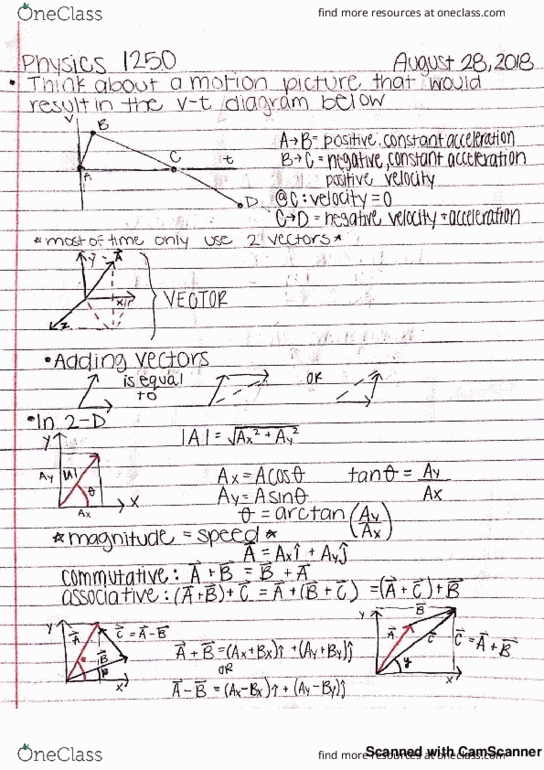 OneClass
find more resources at oneclass.com
Physics 1250
August 28, 2018
• Think about a motion picture that would
result in the v-t diagram below
V
B
A
C
t
D
A→B = positive, constant acceleration
B→C = negative, constant acceleration
positive velocity
@C: velocity = 0
C→D = negative velocity + acceleration
*most of time only use 2 vectors*
y
A
x
z
VECTOR
• Adding vectors
is equal
to
OR
• In 2-D
y
Ay
|A|
θ
Ax
x
|A| = √Ax² + Ay²
Ax = Acosθ
tanθ = Ay/Ax
Ay = Asinθ
θ = arctan (Ay/Ax)
*magnitude = speed*
A⃗ = Axî + Ayĵ
commutative: A⃗ + B⃗ = B⃗ + A⃗
associative: (A⃗+B⃗) + C⃗ = A⃗ + (B⃗ + C⃗) = (A⃗ + C⃗) + B⃗
y
A⃗
C⃗ = A⃗ - B⃗
-B⃗
x
A⃗ + B⃗ = (Ax+Bx)î + (Ay+By)ĵ
OR
A⃗ - B⃗ = (Ax-Bx)î + (Ay-By)ĵ
y
B⃗
A⃗
C⃗
x
C⃗ = A⃗ + B⃗
OneClass
find more resources at oneclass.com
Scanned with CamScanner